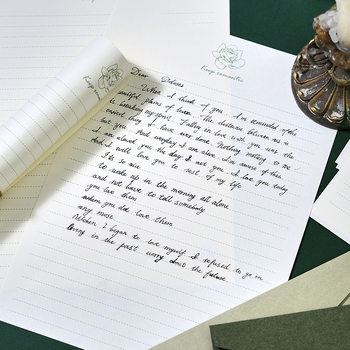 Keep romantic
Dear Adams
When I think of you, I'm reminded of the
painful plains of The distance between us is
is breaking my spirit. Falling in love with you was the
easiest thing I have ever done. Nothing matters to me
but you. And everyday I am alive, I'm aware of this.
I am loved you the day I met you, I love you today
And I will love you to rest of my life
It's so nice
to wake up in the morning all alone
and not have to tell somebody
you love them
when you do love them
any more
When I began to love myself I refused to go on
living in the past worry about the future